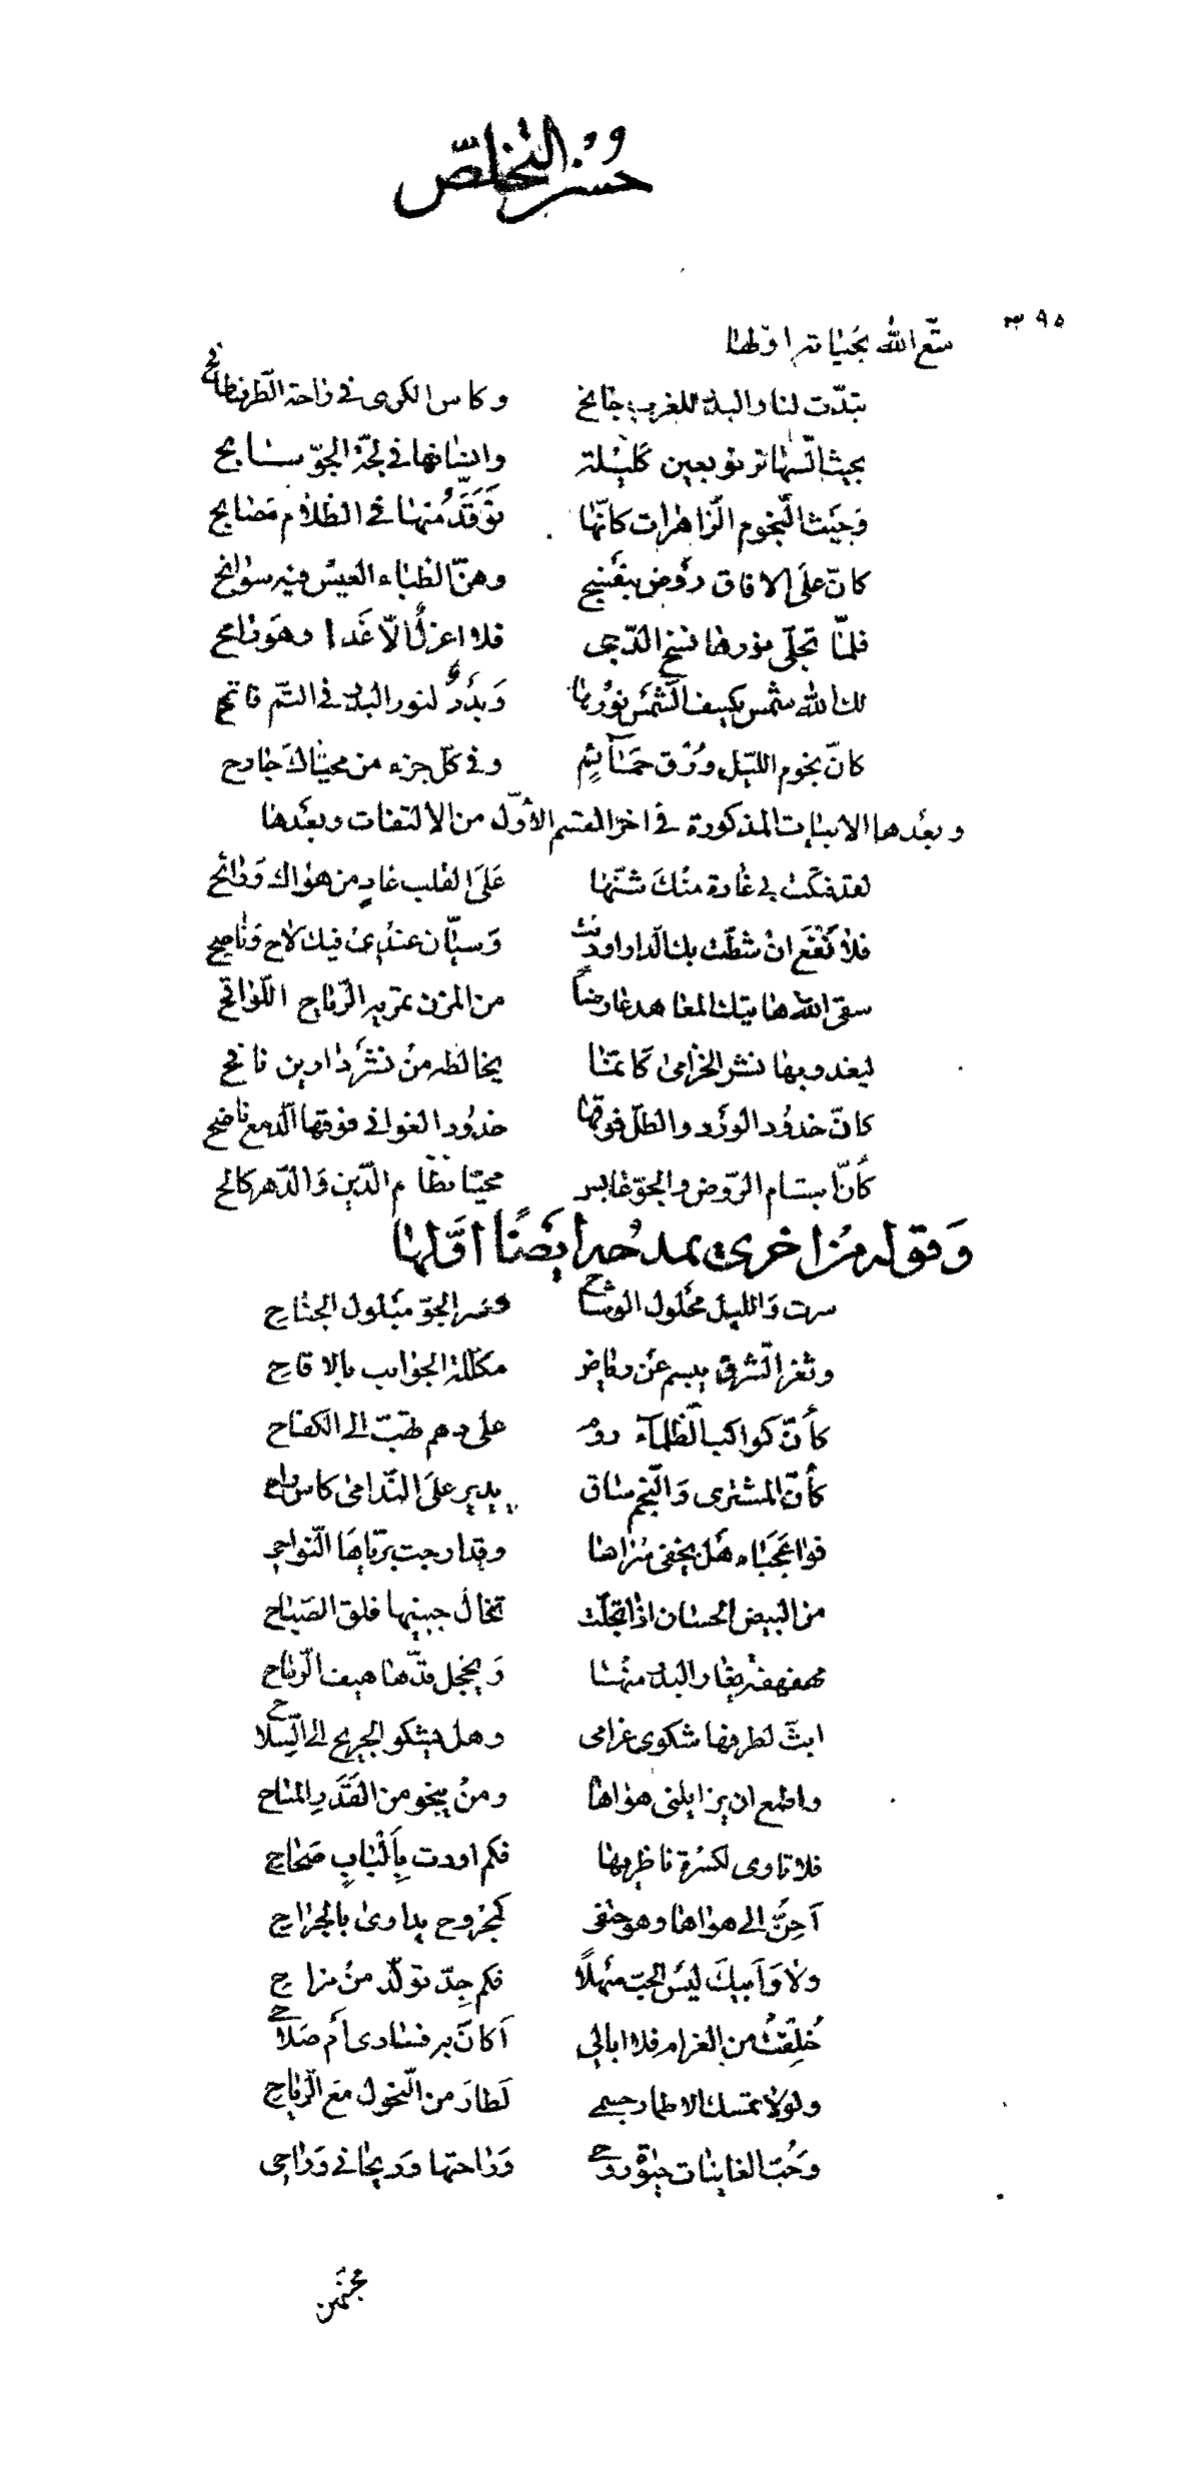 حسن التخلص
٣٩٥
متّع الله بحياته اولها
تبدّت لنا والبدر للغرب جانح	وكاس الكرى في راحة الطرف طافح
بحيث السّها ترنو بعين كليلة	وانسانها في لجّة الجوّ سابح
وحيث النّجوم الزّاهرات كانّها	توقّد منها في الظلام مصابح
كانّ على الافاق روض بنفسج	وهنّ الظباء العيس فيه سوانح
فلمّا تجلّى نورها نسخ الدّجى	فلا اعزل الّا غدا وهو رامح
لك الله شمس يكسف الشّمس نورها	وبدرٌ لنور البدر في التّم فاتح
كانّ نجوم اللّيل ورق حمائم	وفي كلّ جزء من محيّاك جارح
وبعدها الابيات المذكورة في اخر القسم الأوّل من الالتفات وبعدها
لقد فتكت بي غارة منك شنّها	على القلب غادٍ من هواك ورائح
فلا تقنع انْ شطّت بك الدّار او دنت	وسيّان عندي فيك لاح وناصح
سقى الله هاتيك المعاهد عارضاً	من المزن تمريه الرّياح اللّواقح
ليغدو بها نشر الخزامى كانّما	يخالطه منْ نشر دارين نافح
كانّ خدود الورد والطلّ فوقها	خدود الغواني فوقها الدّمع ناضح
كأنّ ابتسام الرّوض والجوّ عابس	محيّا نظام الدّين والدّهر كالح
وقوله من اخرى يمدحه ايضًا اوّلها
سرت واللّيل محلول الوشاح	ونسر الجوّ مبلول الجناح
وثغر الشّرق يبسم عن رياض	مكلّلة الجوانب بالاقاح
كأنّ كواكب الظّلماء روم	على دهم تهبّ الى الكفاح
كأنّ المشتري والنّجم ساق	يدير على النّدامى كاس راح
فواعجباه هل يخفى سراها	وقد ارجت بريّاها النّواحي
من البيض الحسان اذا تجلّت	تخال جبينها فلق الصّباح
مهفهفة يغار البدر منها	ويخجل قدّها هيف الرّماح
ابثّ لطرفها شكوى غرامي	وهل يشكو الجريح الى السّلاح
واطمع ان يزايلني هواها	ومنْ ينجو من القدر المتاح
فلا تاوى لكسرة ناظريها	فكم اودت بألبابٍ صحاح
أحنّ الى هواها وهو حتفي	كمجروح يداوى بالجراح
ولا وأبيك ليس الحبّ سهلًا	فكم جدّ تولّد منْ مزاح
خُلقتُ من الغرام فلا ابالي	أكان به فسادى أم صلاحي
ولولا تمسك الاطمار جسمى	لطار من النّحول مع الرّياح
وحُبّ الغانيات حيوة روحى	وراحتها وريحاني وراحي
فمن